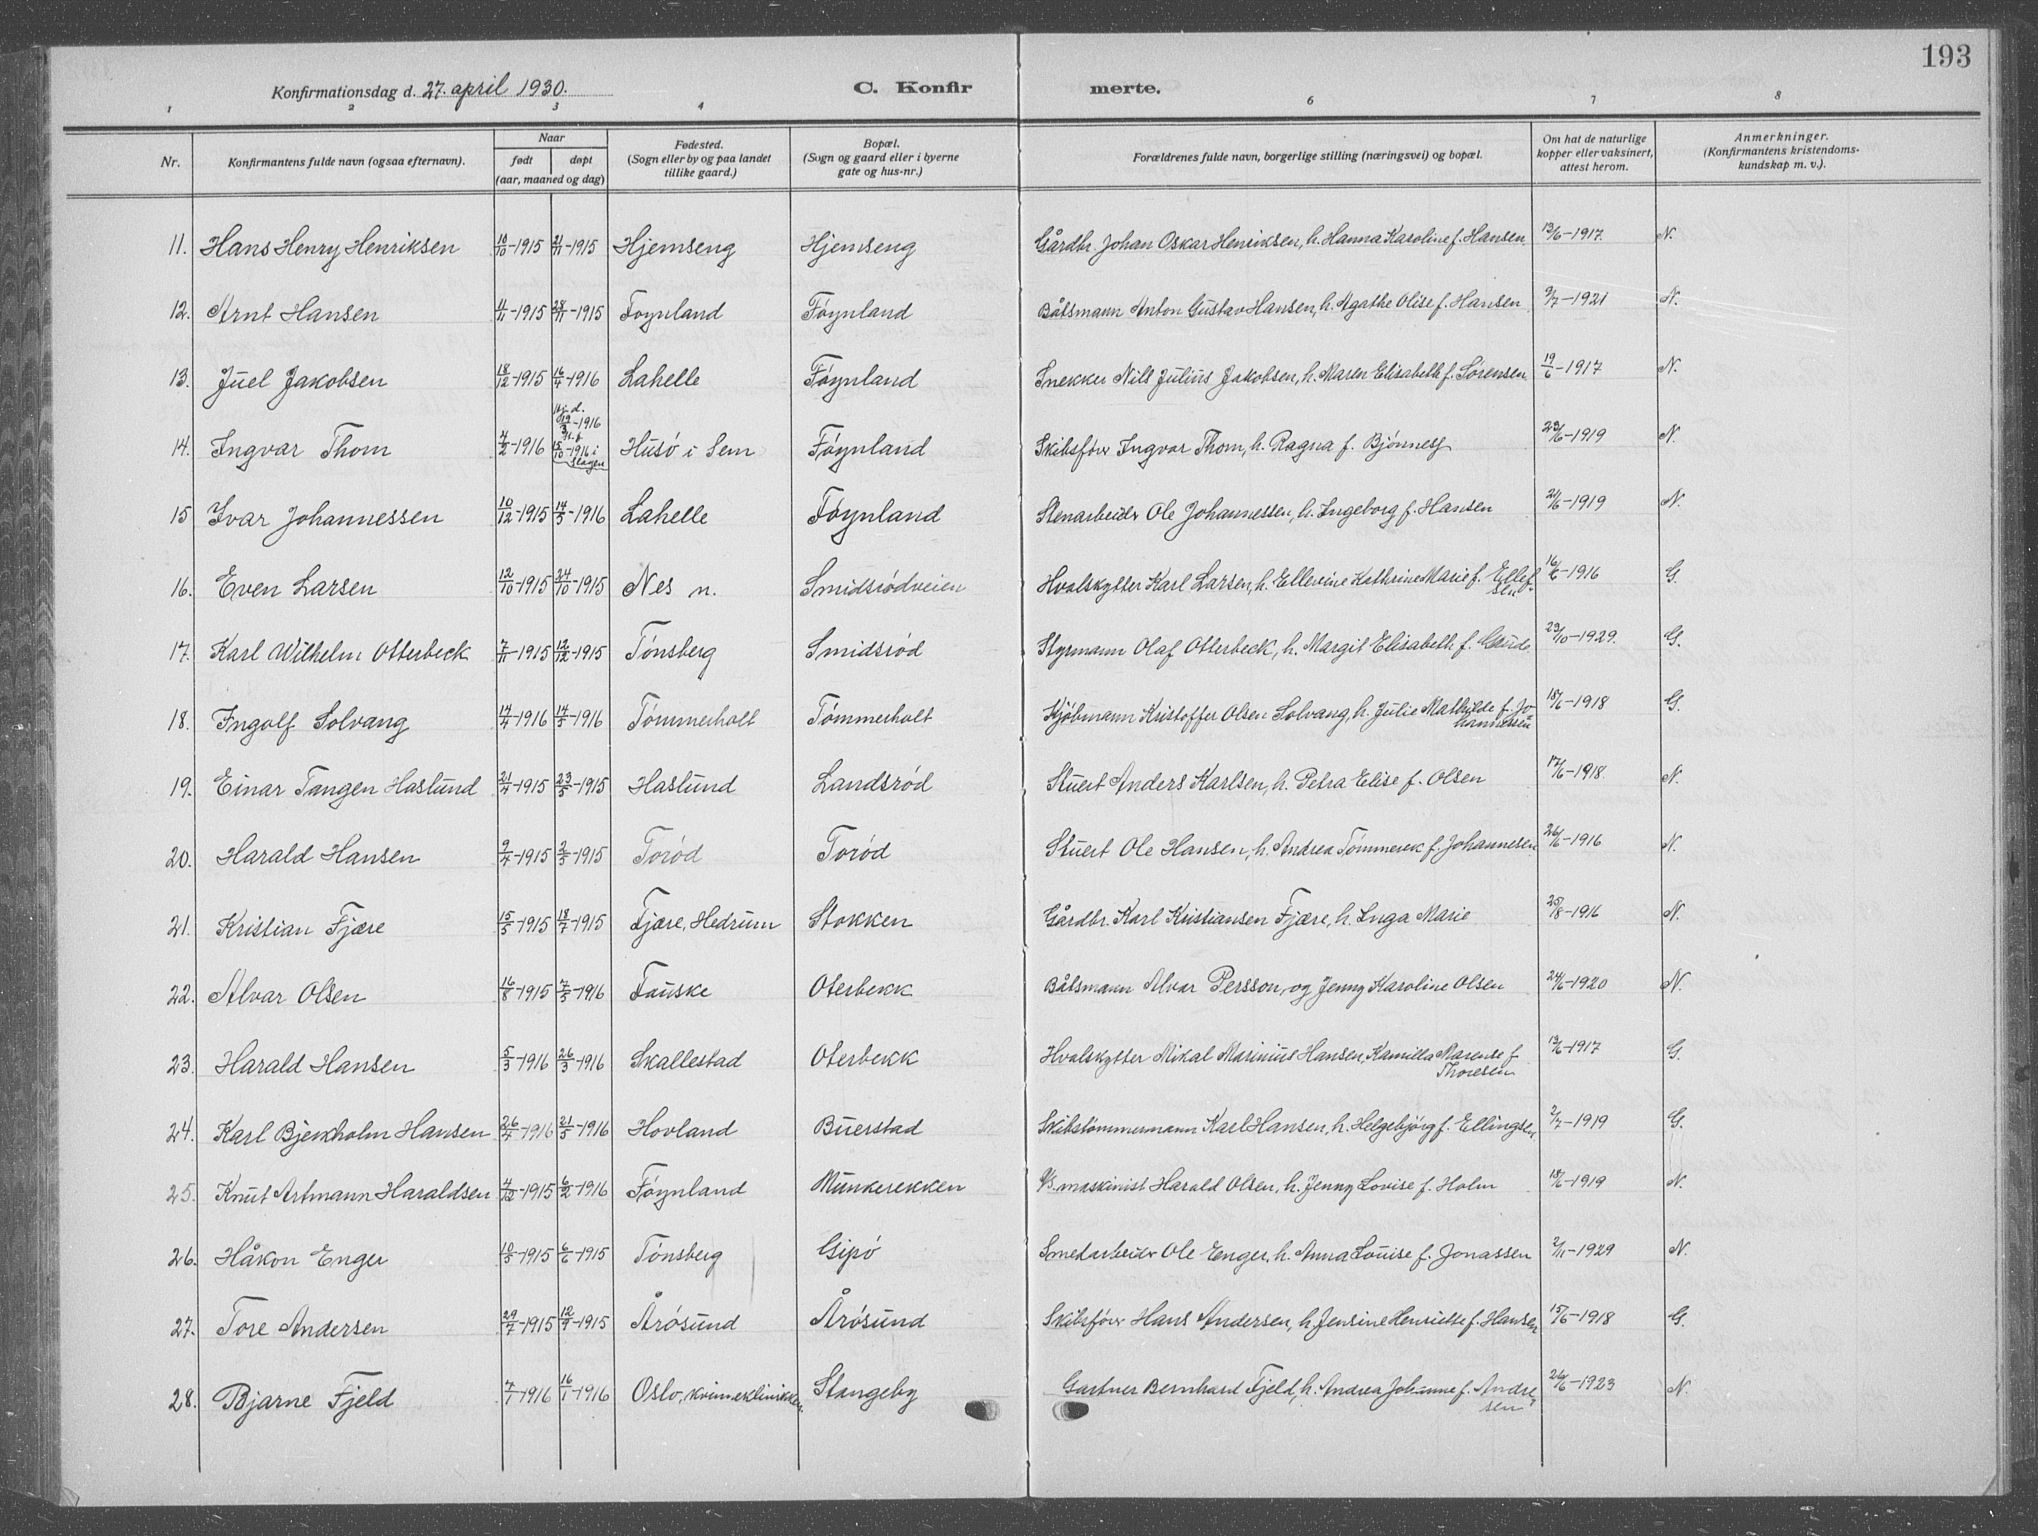 193
Konfirmationsdag d. 27. april 1930. C. Konfir merte.
1 2 3 4 6 7 8
Nr. Konfirmantens fulde navn (ogsaa efternavn). Naar født døpt (aar, maaned og dag) Fødested. (Sogn eller by og paa landet tillike gaard.) Bopæl. (Sogn og gaard eller i byerne gate og hus-nr.) Forældrenes fulde navn, borgerlige stilling (næringsvei) og bopæl. Om hat de naturlige kopper eller vaksinert, attest herom. Anmerkninger. (Konfirmantens kristendoms-kundskap m. v.).
11. Hans Henry Henriksen 10/10-1915 21/11-1915 Hjemseng Hjemseng Gårdbr. Johan Oskar Henriksen, h. Hanna Karoline f. Hansen 13/6-1917. N.
12. Arnt Hansen 4/11-1915 28/11-1915 Føynland Føynland Båtsmann Anton Gustav Hansen, h. Agathe Olise f. Hansen 9/7-1921 N.
13. Juel Jakobsen 18/12-1915 16/4-1916 Lahelle Føynland Snekker Nils Julius Jakobsen, h. Maren Elisabeth f. Sørensen 19/6-1917 N.
14. Ingvar Thom 4/2-1916 Hj. d. 19/3-1916 st. f. 15/10-1916 i Slagen Husö i Sem Føynland Skibsfører Ingvar Thom, h. Ragna f. Bjønnes 23/6-1919 N.
15 Ivar Johannessen 10/12-1915 14/5-1916 Lahelle Føynland Stenarbeider Ole Johannessen, h. Ingeborg f. Hansen 21/6-1919 N.
16. Even Larsen 12/10-1915 24/10-1915 Nes n. Smidsrødveien Hvalskytter Karl Larsen, h. Ellevine Kathrine Marie f. Ellefsen 16/6-1916 G.
17. Karl Wilhelm Otterbeck 7/11-1915 12/12-1915 Tønsberg Smidsrød Styrmann Olaf Otterbeck, h. Margit Elisabeth f. 23/10-1929. G.
18. Ingolf Solvang 14/4-1916 14/5-1916 Tömmerholt Tømmerholt Kjöbmann Kristoffer Olsen Solvang, h. Julie Mathilde f. Johannessen 18/6-1918 G.
19. Einar Tangen Haslund 21/4-1915 23/5-1915 Haslund Landsrød Stuert Anders Karlsen, h. Petra Elise f. Olsen 17/6-1918. N.
20. Harald Hansen 9/4-1915 2/5-1915 Torød Torød Stuert Ole Hansen, h. Andrea f. Johannesen 26/6-1916 N.
21. Kristian Fjære 15/5-1915 18/7-1915 Fjære, Hedrum Stokken Gårdbr. Karl Kristiansen Fjære, h. Inga Marie 25/8-1916 N.
22. Alvar Olsen 16/8-1915 7/5-1916 Fauske Oterbekk Båtsmann Alvar Persson, og Jenny Karoline Olsen 24/6-1920 N.
23. Harald Hansen 5/3-1916 26/3-1916 Skallestad Oterbekk Hvalskytter Mikal Marinius Hansen, Kamilla Marense f. Thoresen 13/6-1917 G.
24. Karl Bjerkholm Hansen 26/4-1916 21/5-1916 Hovland Buerstad Skibstömmermann Karl Hansen, h. Helgebjörg f. Ellingsen 2/7-1919 G.
25. Knut Artmann Haraldsen 4/12-1915 6/2-1916 Føynland Munkerekken maskinist Harald Olsen, h. Jenny Lovise f. Holm 18/6-1919 N.
26. Håkon Enger 10/5-1915 6/6-1915 Tønsberg Gipö Smedarbeider Ole Enger, h. Anna Louise f. Jonassen 2/11-1929 N.
27. Tore Andersen 29/7-1915 12/9-1915 Årøsund Årøsund Skibsfører Hans Andersen, h. Jensine Henriette f. Hansen 15/6-1918 G.
28. Bjarne Fjeld 7/1-1916 16/1-1916 Oslo, kvinneklinikken. Stangeby Gartner Bernhard Fjeld, h. Andrea Johanne f. Andresen 26/6-1923 N.